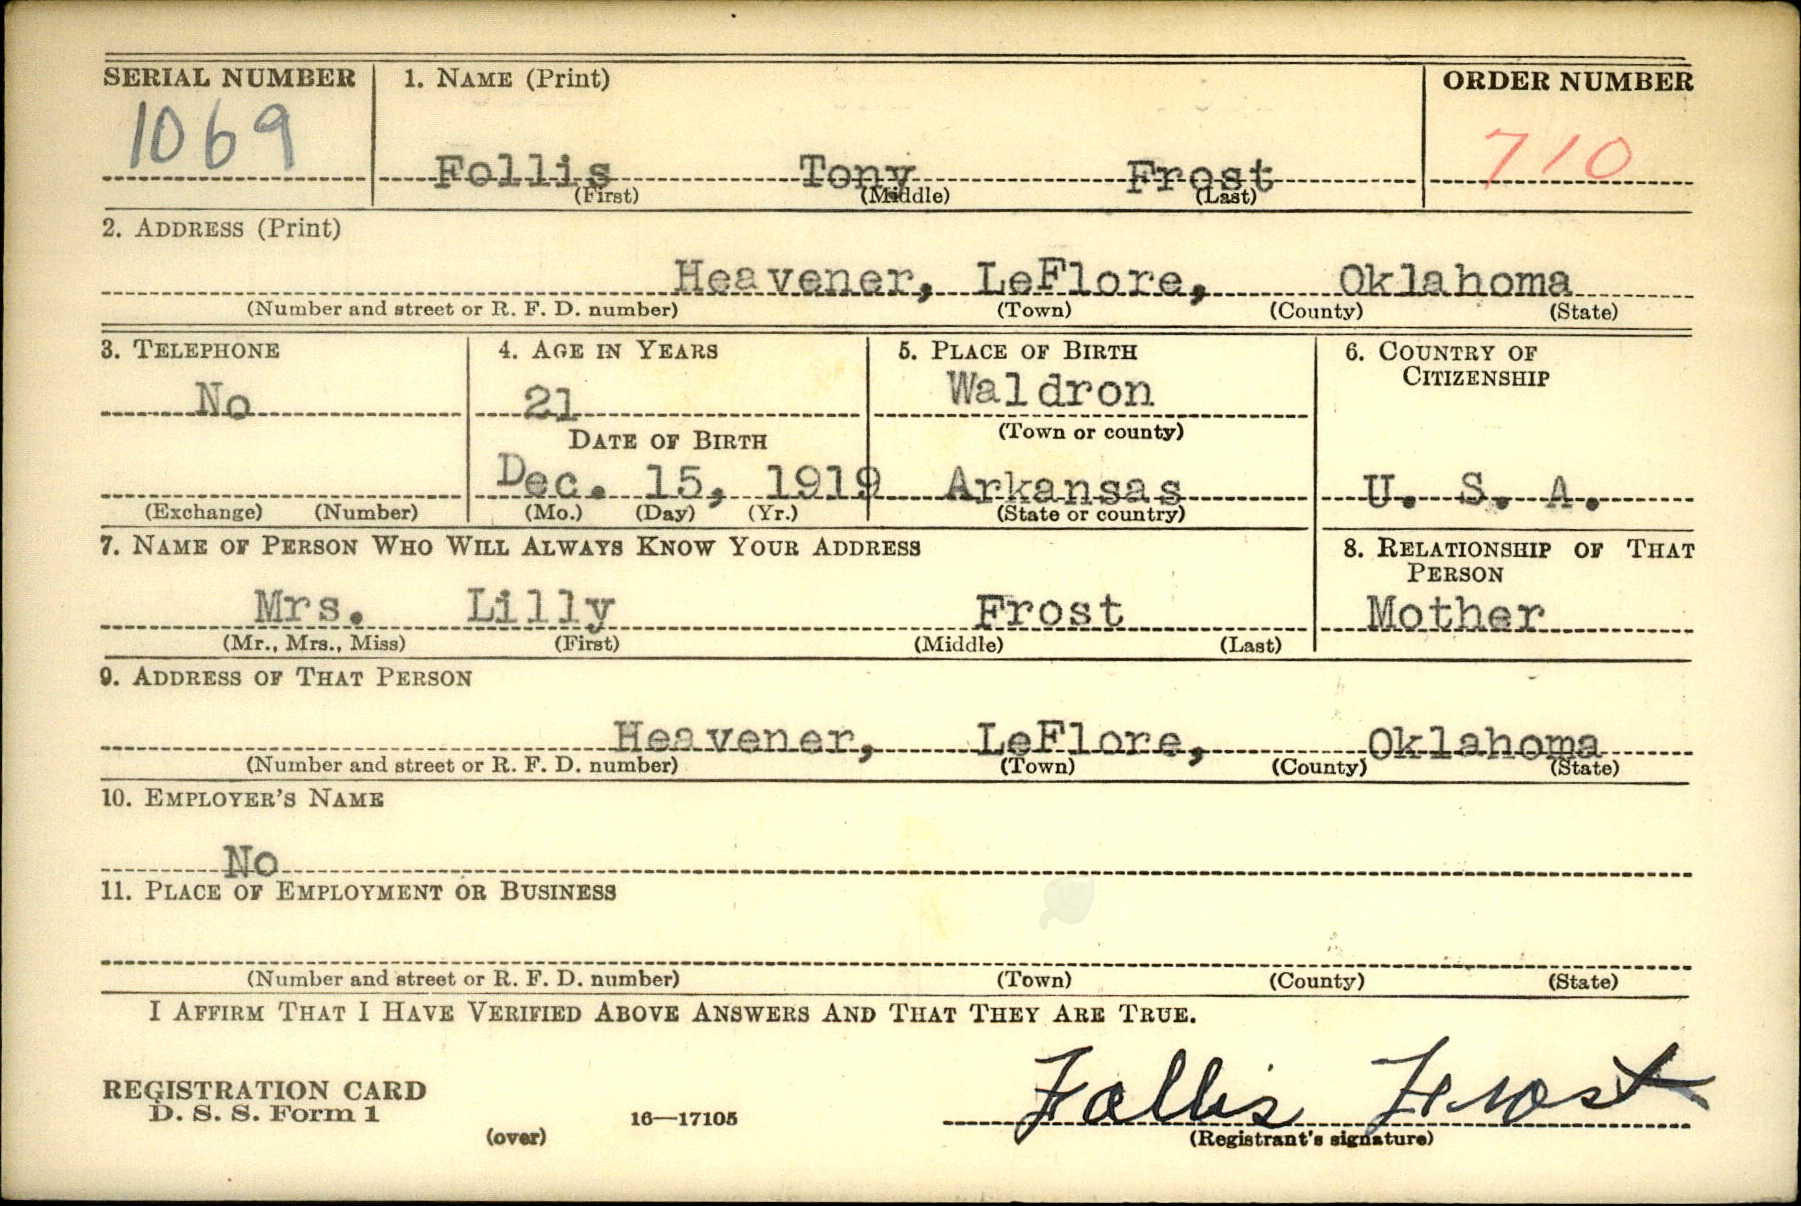 SERIAL NUMBER 1. NAME (Print) ORDER NUMBER
1069 Follis Tony Frost 710
(First) (Middle) (Last)
2. ADDRESS (Print)
Heavener, LeFlore, Oklahoma
(Number and street or R. F. D. number) (Town) (County) (State)
3. TELEPHONE 4. AGE IN YEARS 5. PLACE OF BIRTH 6. COUNTRY OF
CITIZENSHIP
No 21 Waldron
DATE OF BIRTH (Town or county)
Dec. 15, 1919 Arkansas U. S. A.
(Exchange) (Number) (Mo.) (Day) (Yr.) (State or country)
7. NAME OF PERSON WHO WILL ALWAYS KNOW YOUR ADDRESS 8. RELATIONSHIP OF THAT
PERSON
Mrs. Lilly Frost Mother
(Mr., Mrs., Miss) (First) (Middle) (Last)
9. ADDRESS OF THAT PERSON
Heavener, LeFlore, Oklahoma
(Number and street or R. F. D. number) (Town) (County) (State)
10. EMPLOYER'S NAME
No
11. PLACE OF EMPLOYMENT OR BUSINESS
(Number and street or R. F. D. number) (Town) (County) (State)
I AFFIRM THAT I HAVE VERIFIED ABOVE ANSWERS AND THAT THEY ARE TRUE.
REGISTRATION CARD Follis Frost
D. S. S. Form 1 16—17105
(over) (Registrant's signature)